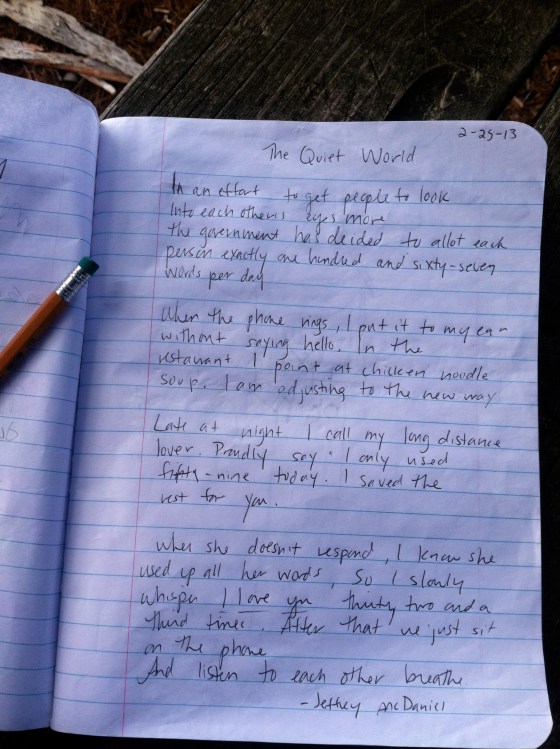 2-25-13
The Quiet World
In an effort to get people to look
Into each others eyes more
the government has decided to allot each
person exactly one hundred and sixty-seven
words per day
When the phone rings, I put it to my ear
without saying hello. In the
restaurant I point at chicken noodle
soup. I am adjusting to the new way
Late at night I call my long distance
lover. Proudly say. I only used
fifty-nine today. I saved the
rest for you.
When she doesn't respond, I know she
used up all her words, So I slowly
whisper I love you thirty two and a
third times. After that we just sit
on the phone
And listen to each other breathe
- Jeffrey McDaniel